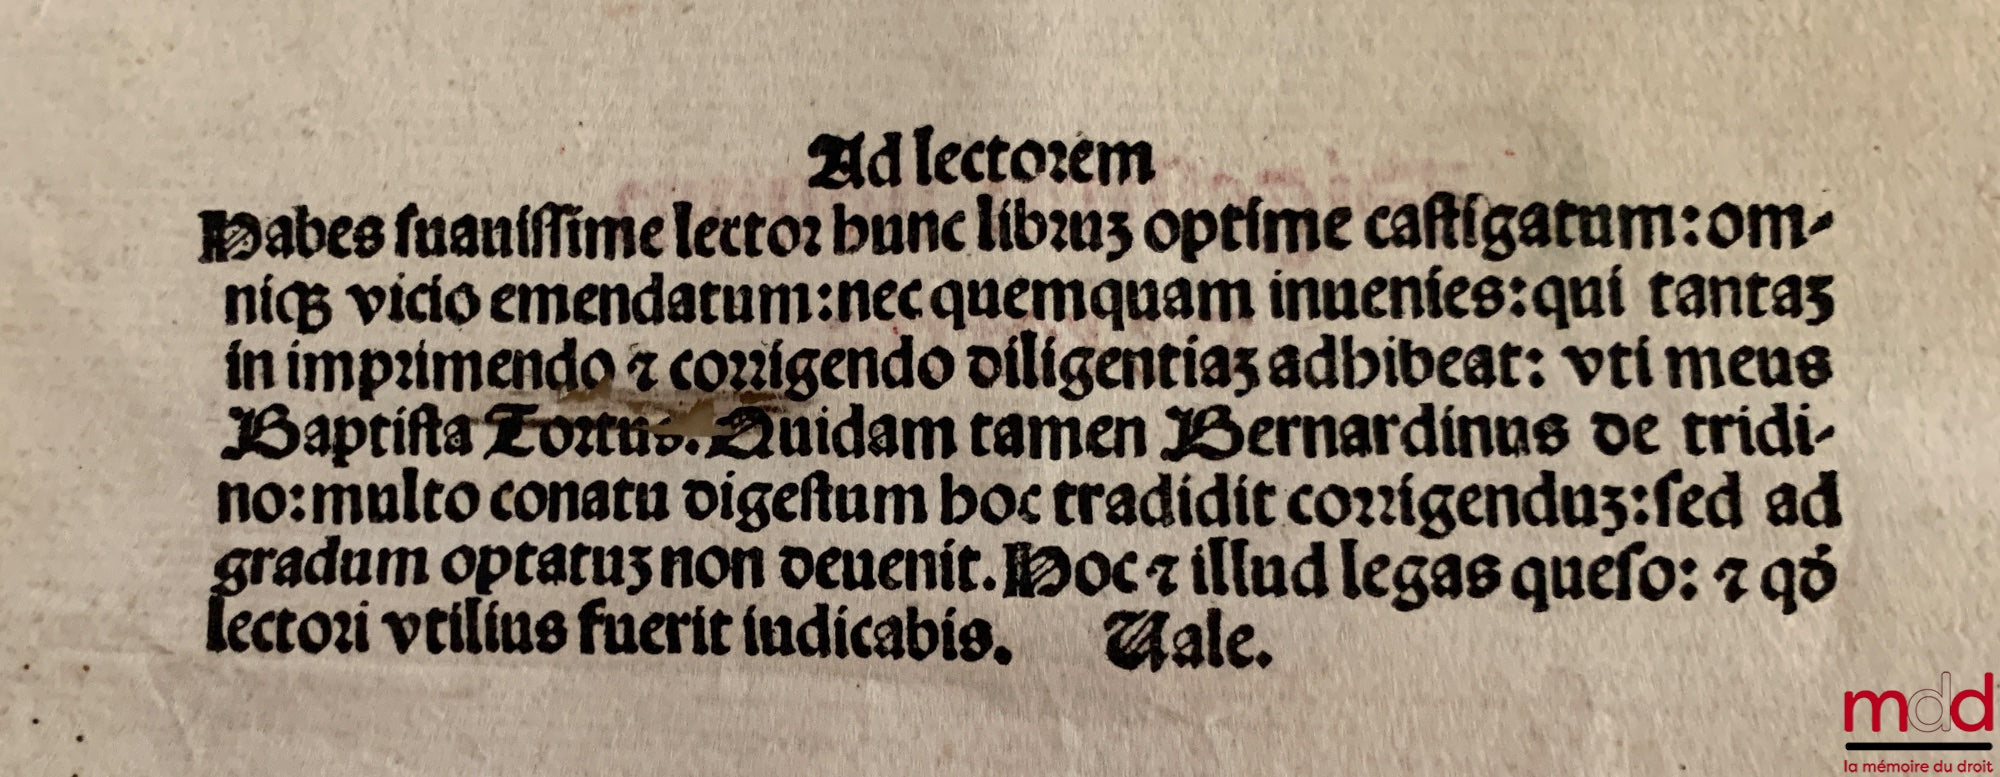 Ad lectorem
Habes suauissime lector hunc libruꝫ optime castigatum: om-
niqꝫ vicio emendatum: nec quemquam inuenies: qui tantaꝫ
in imprimendo ⁊ corrigendo diligentiaꝫ adhibeat: vti meus
Baptista Tortus. Quidam tamen Bernardinus de tridi-
no: multo conatu digestum hoc tradidit corrigenduꝫ: sed ad
gradum optatuꝫ non deuenit. Hoc ⁊ illud legas queso: ⁊ qd́
lectori vtilius fuerit iudicabis. Uale.
mdd
la mémoire du droit